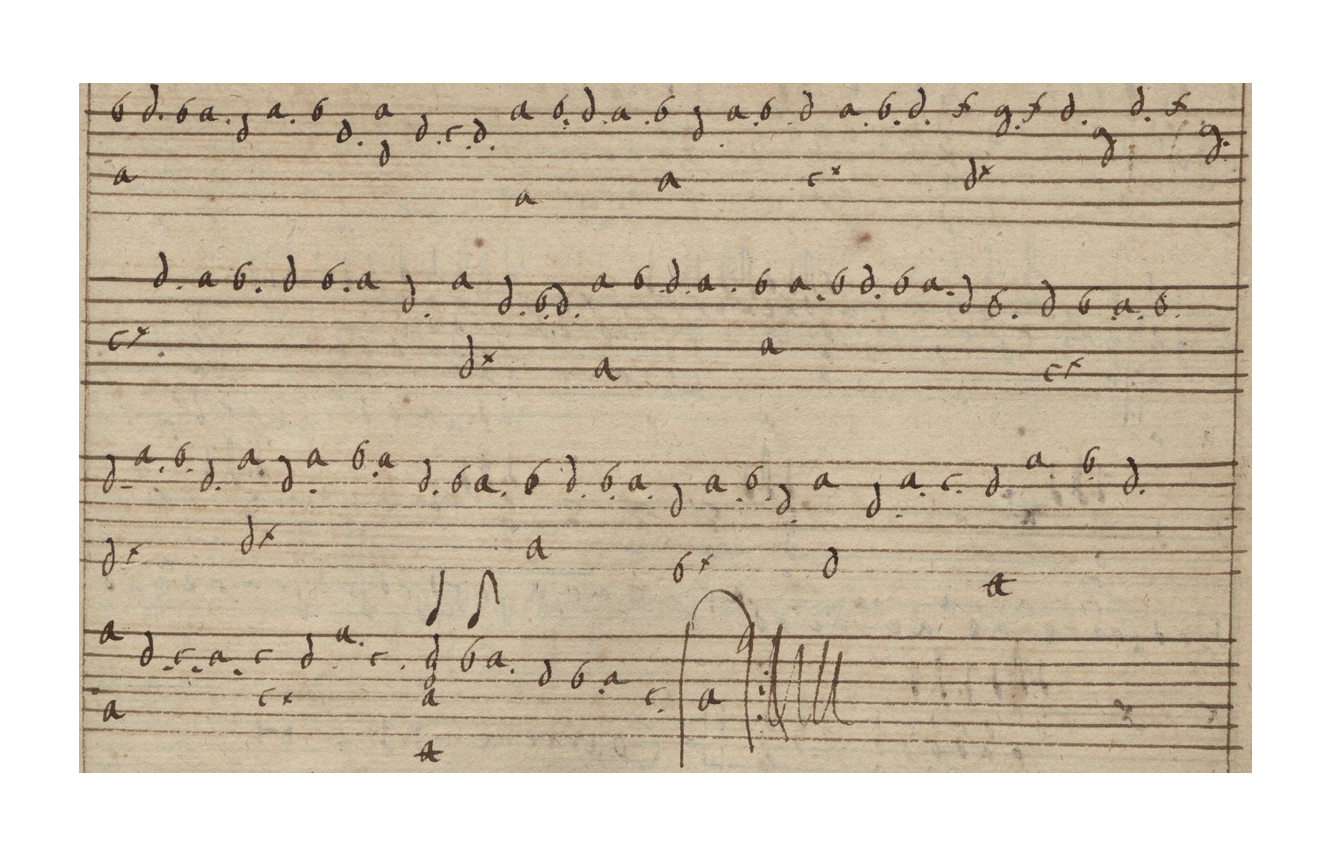 b d. b a. d a. b d. a d d. c. d. a b. d. a. b d a. b. d a. b. d. f g. f d. g d. f g.
a a a c x d x
d. a b. d b. a d. a d. b d. a b d. a. b a. b d. b a. d b. d b a. b.
c x d x a a c x
d a. b. d. a d. a b. a d. b a. b d. b a. d a b d. a d. a. c. d a. b d.
d x d x a b x d a
a d. c. a. c d a. c. d b a. d b. a c. a
a c x a a